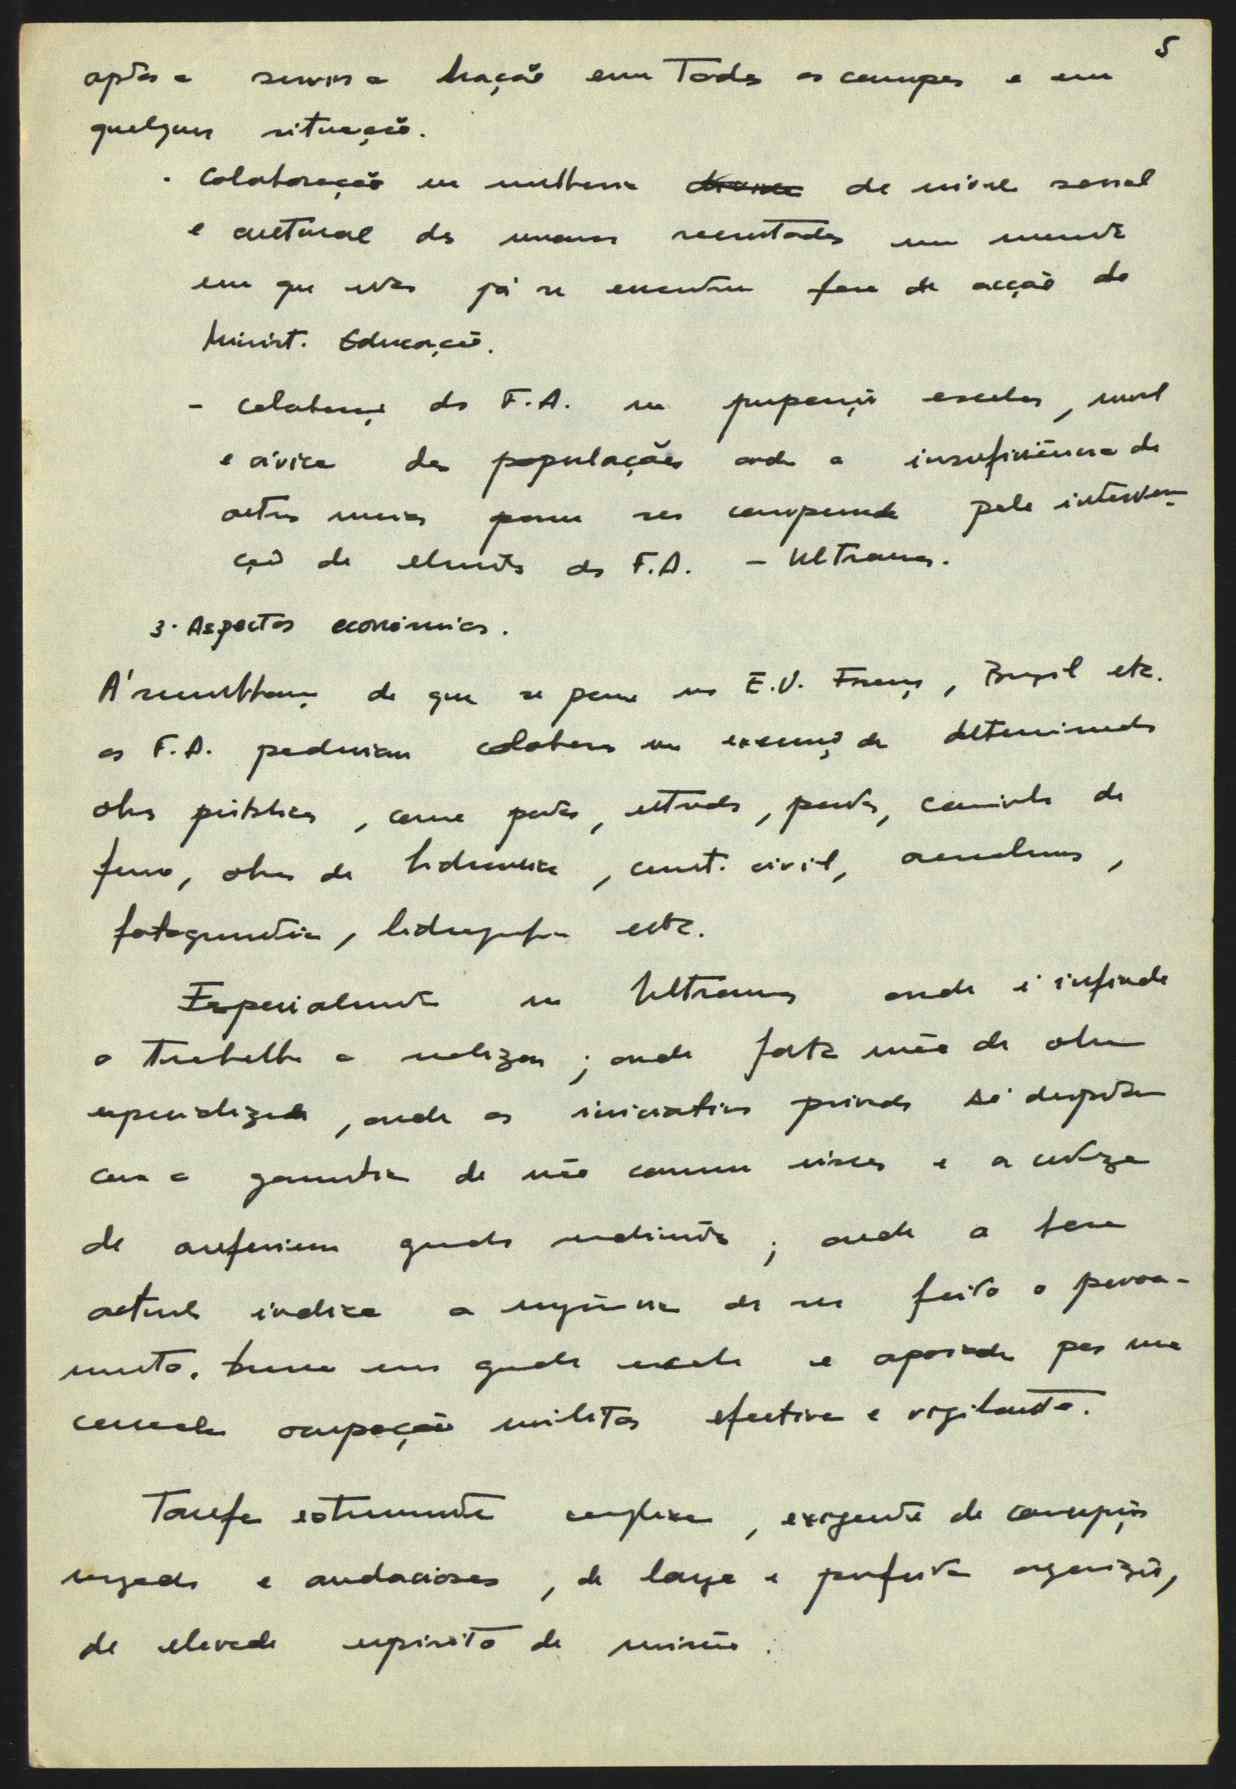 5
aptos a servir a Nação em Todos os campos e em
qualquer situação.
. Colaboração na melhoria de nivel social
e cultural dos mancebos recrutados num momento
em que eles já se encontram fora da acção do
Minist. Educação.
- colaboração das F.A. na preparação escolar, moral
e civica das populações onde a insuficiência de
outros meios possa ser compensada pela interven-
ção de elementos das F.A. - Ultramar.
3. Aspectos económicos.
Á semelhança do que se passa nos E.U. França, Brasil etc.
as F.A. poderiam colaborar na execução de determinadas
obras públicas, como portos, estradas, pontes, caminhos de
ferro, obras de hidraulica, const. civil, aerodromos,
fotogrametria, hidrografia etc.
Especialmente no Ultramar onde é infindo
o trabalho a realizar; onde falta mão de obra
especializada, onde as iniciativas privadas só despertam
com a garantia de não correrem riscos e a certeza
de auferirem grandes rendimentos; onde a hora
actual indica a urgência de ser feito o povoa-
mento. numa grande escala e apoiado por uma
cerrada ocupação militar efectiva e vigilante.
Tarefa extremamente complexa, exigente de concepções
ousadas e audaciosas, de larga e perfeita organização,
de elevado espirito de missão.